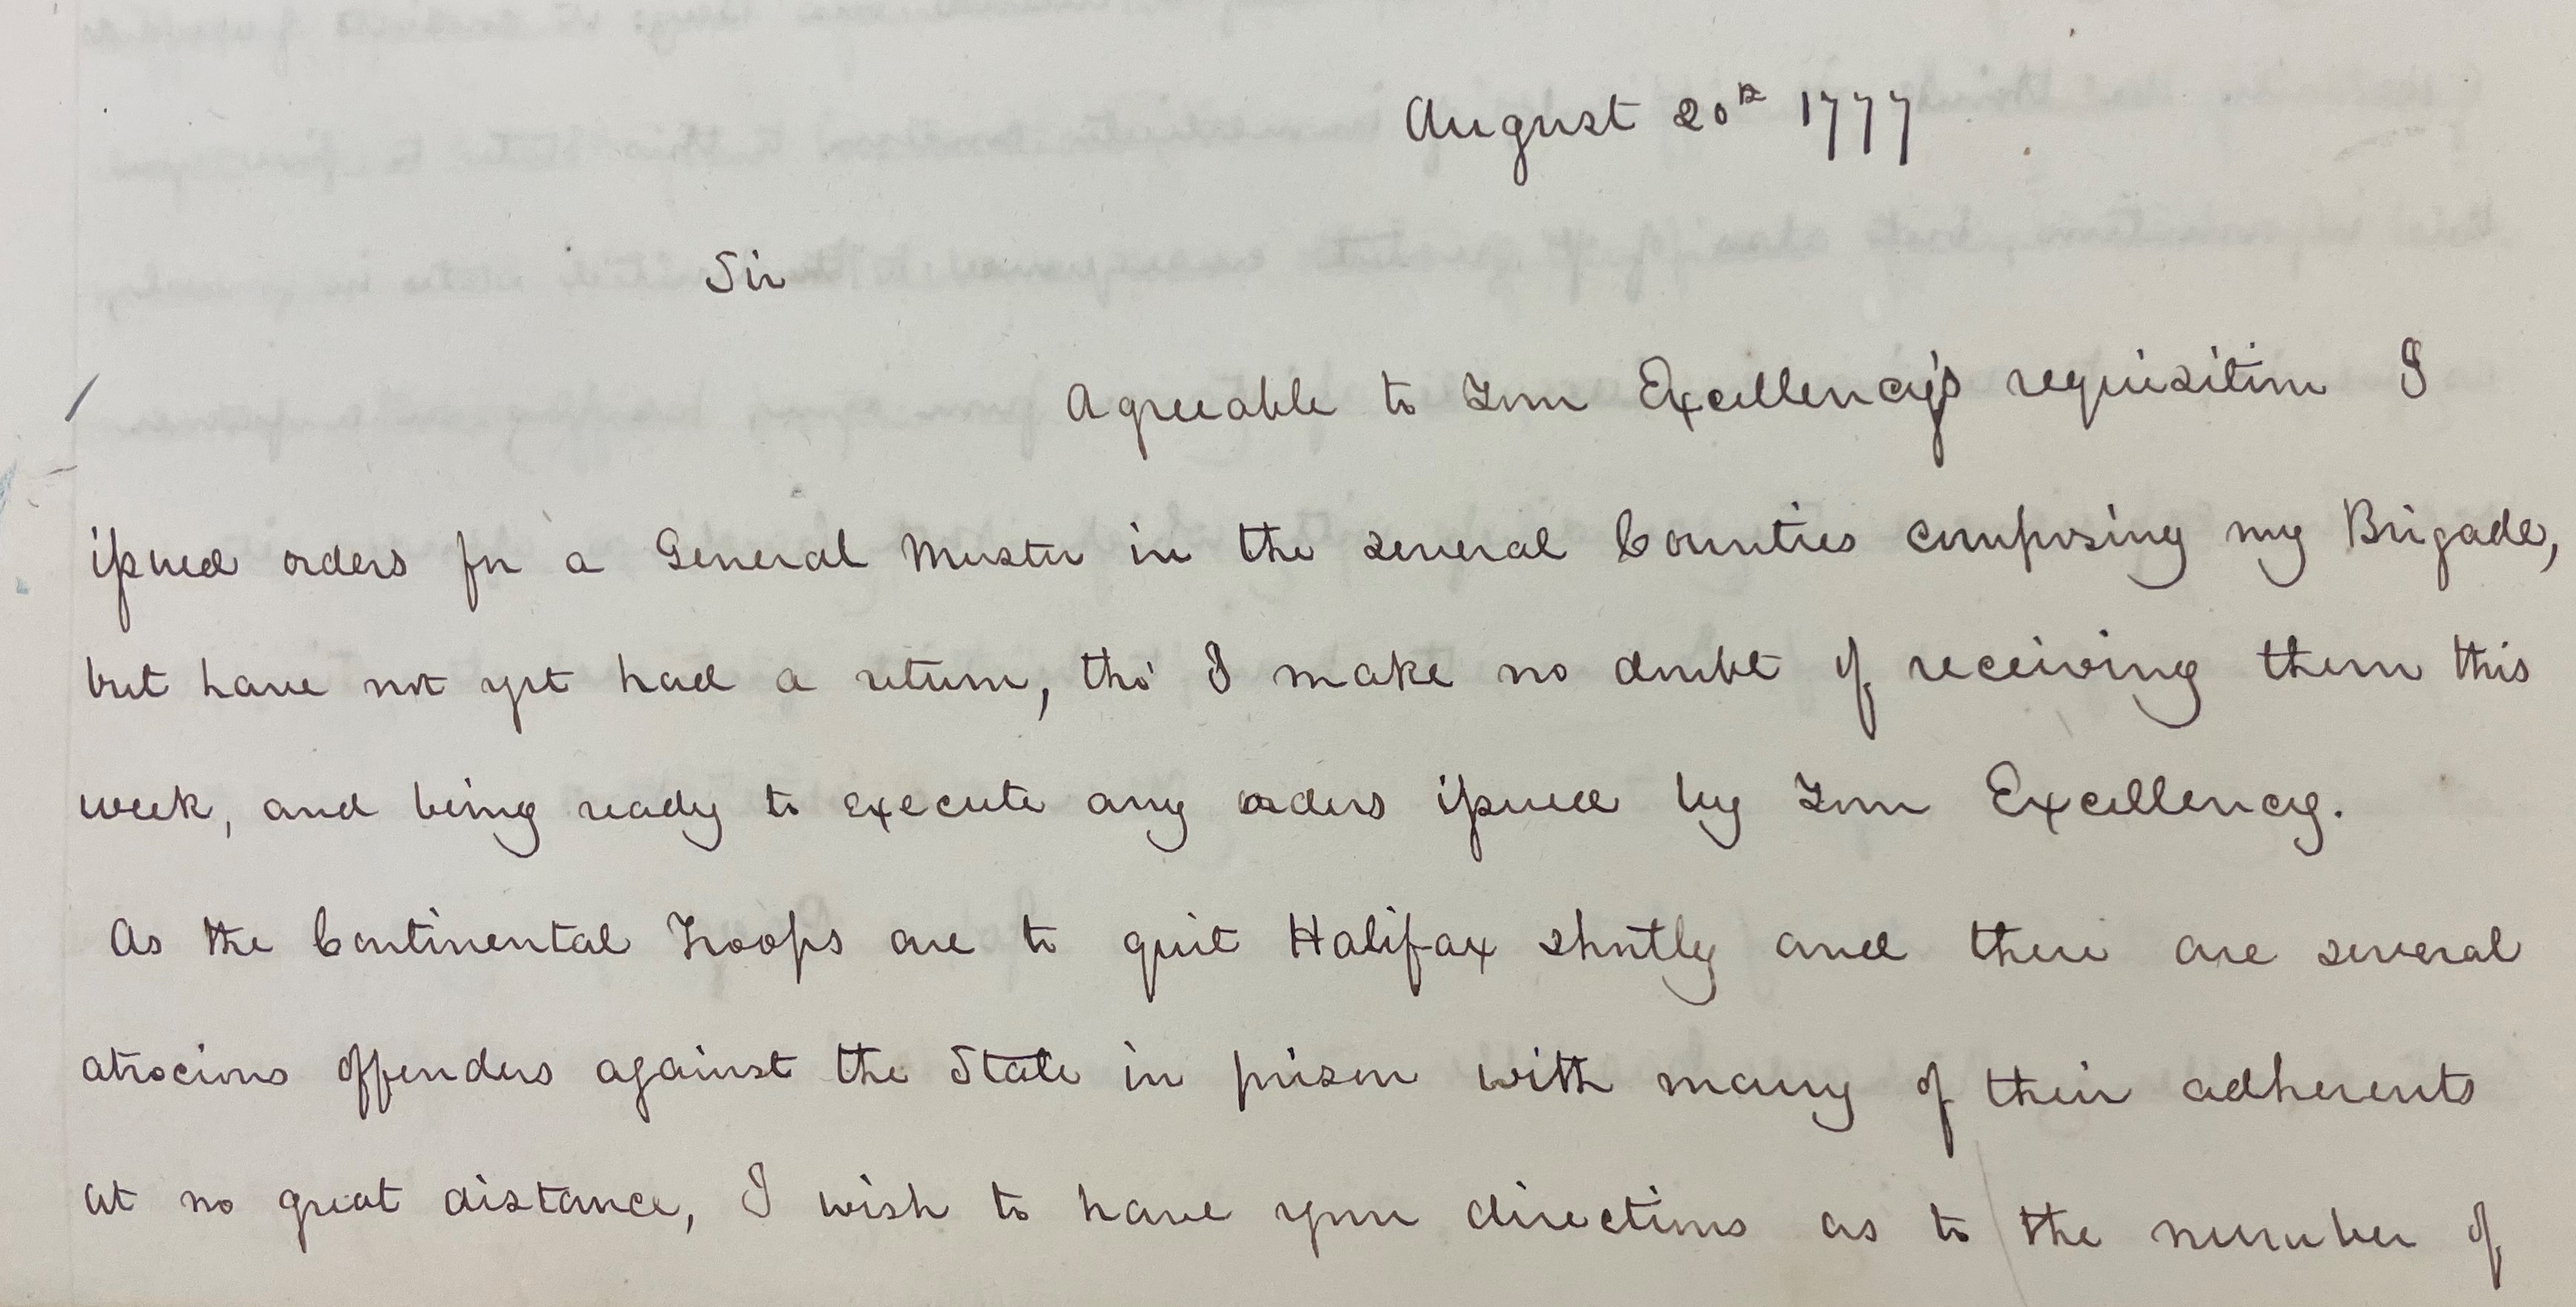 August 20th 1777
Sir
Agreeable to Your Excellency's requisition I
issued orders for a General Muster in the several Counties composing my Brigade,
but have not yet had a return, tho' I make no doubt of receiving them this
week, and being ready to execute any orders issued by Your Excellency.
As the Continental Troops are to quit Halifax shortly and there are several
atrocious offenders against the State in prison with many of their adherents
at no great distance, I wish to have your directions as to the number of